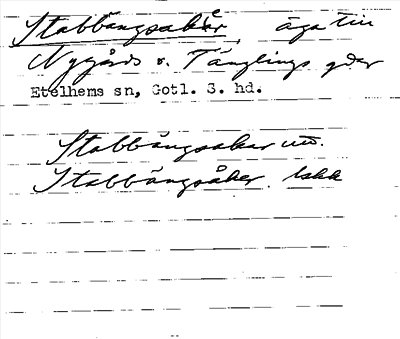 Stabbängsåker, äga till
Nygårds o. Tänglings gdar
Etelhems sn, Gotl. S. hd.
Stabbängsakar utt.
Stabbängsåker. lskk